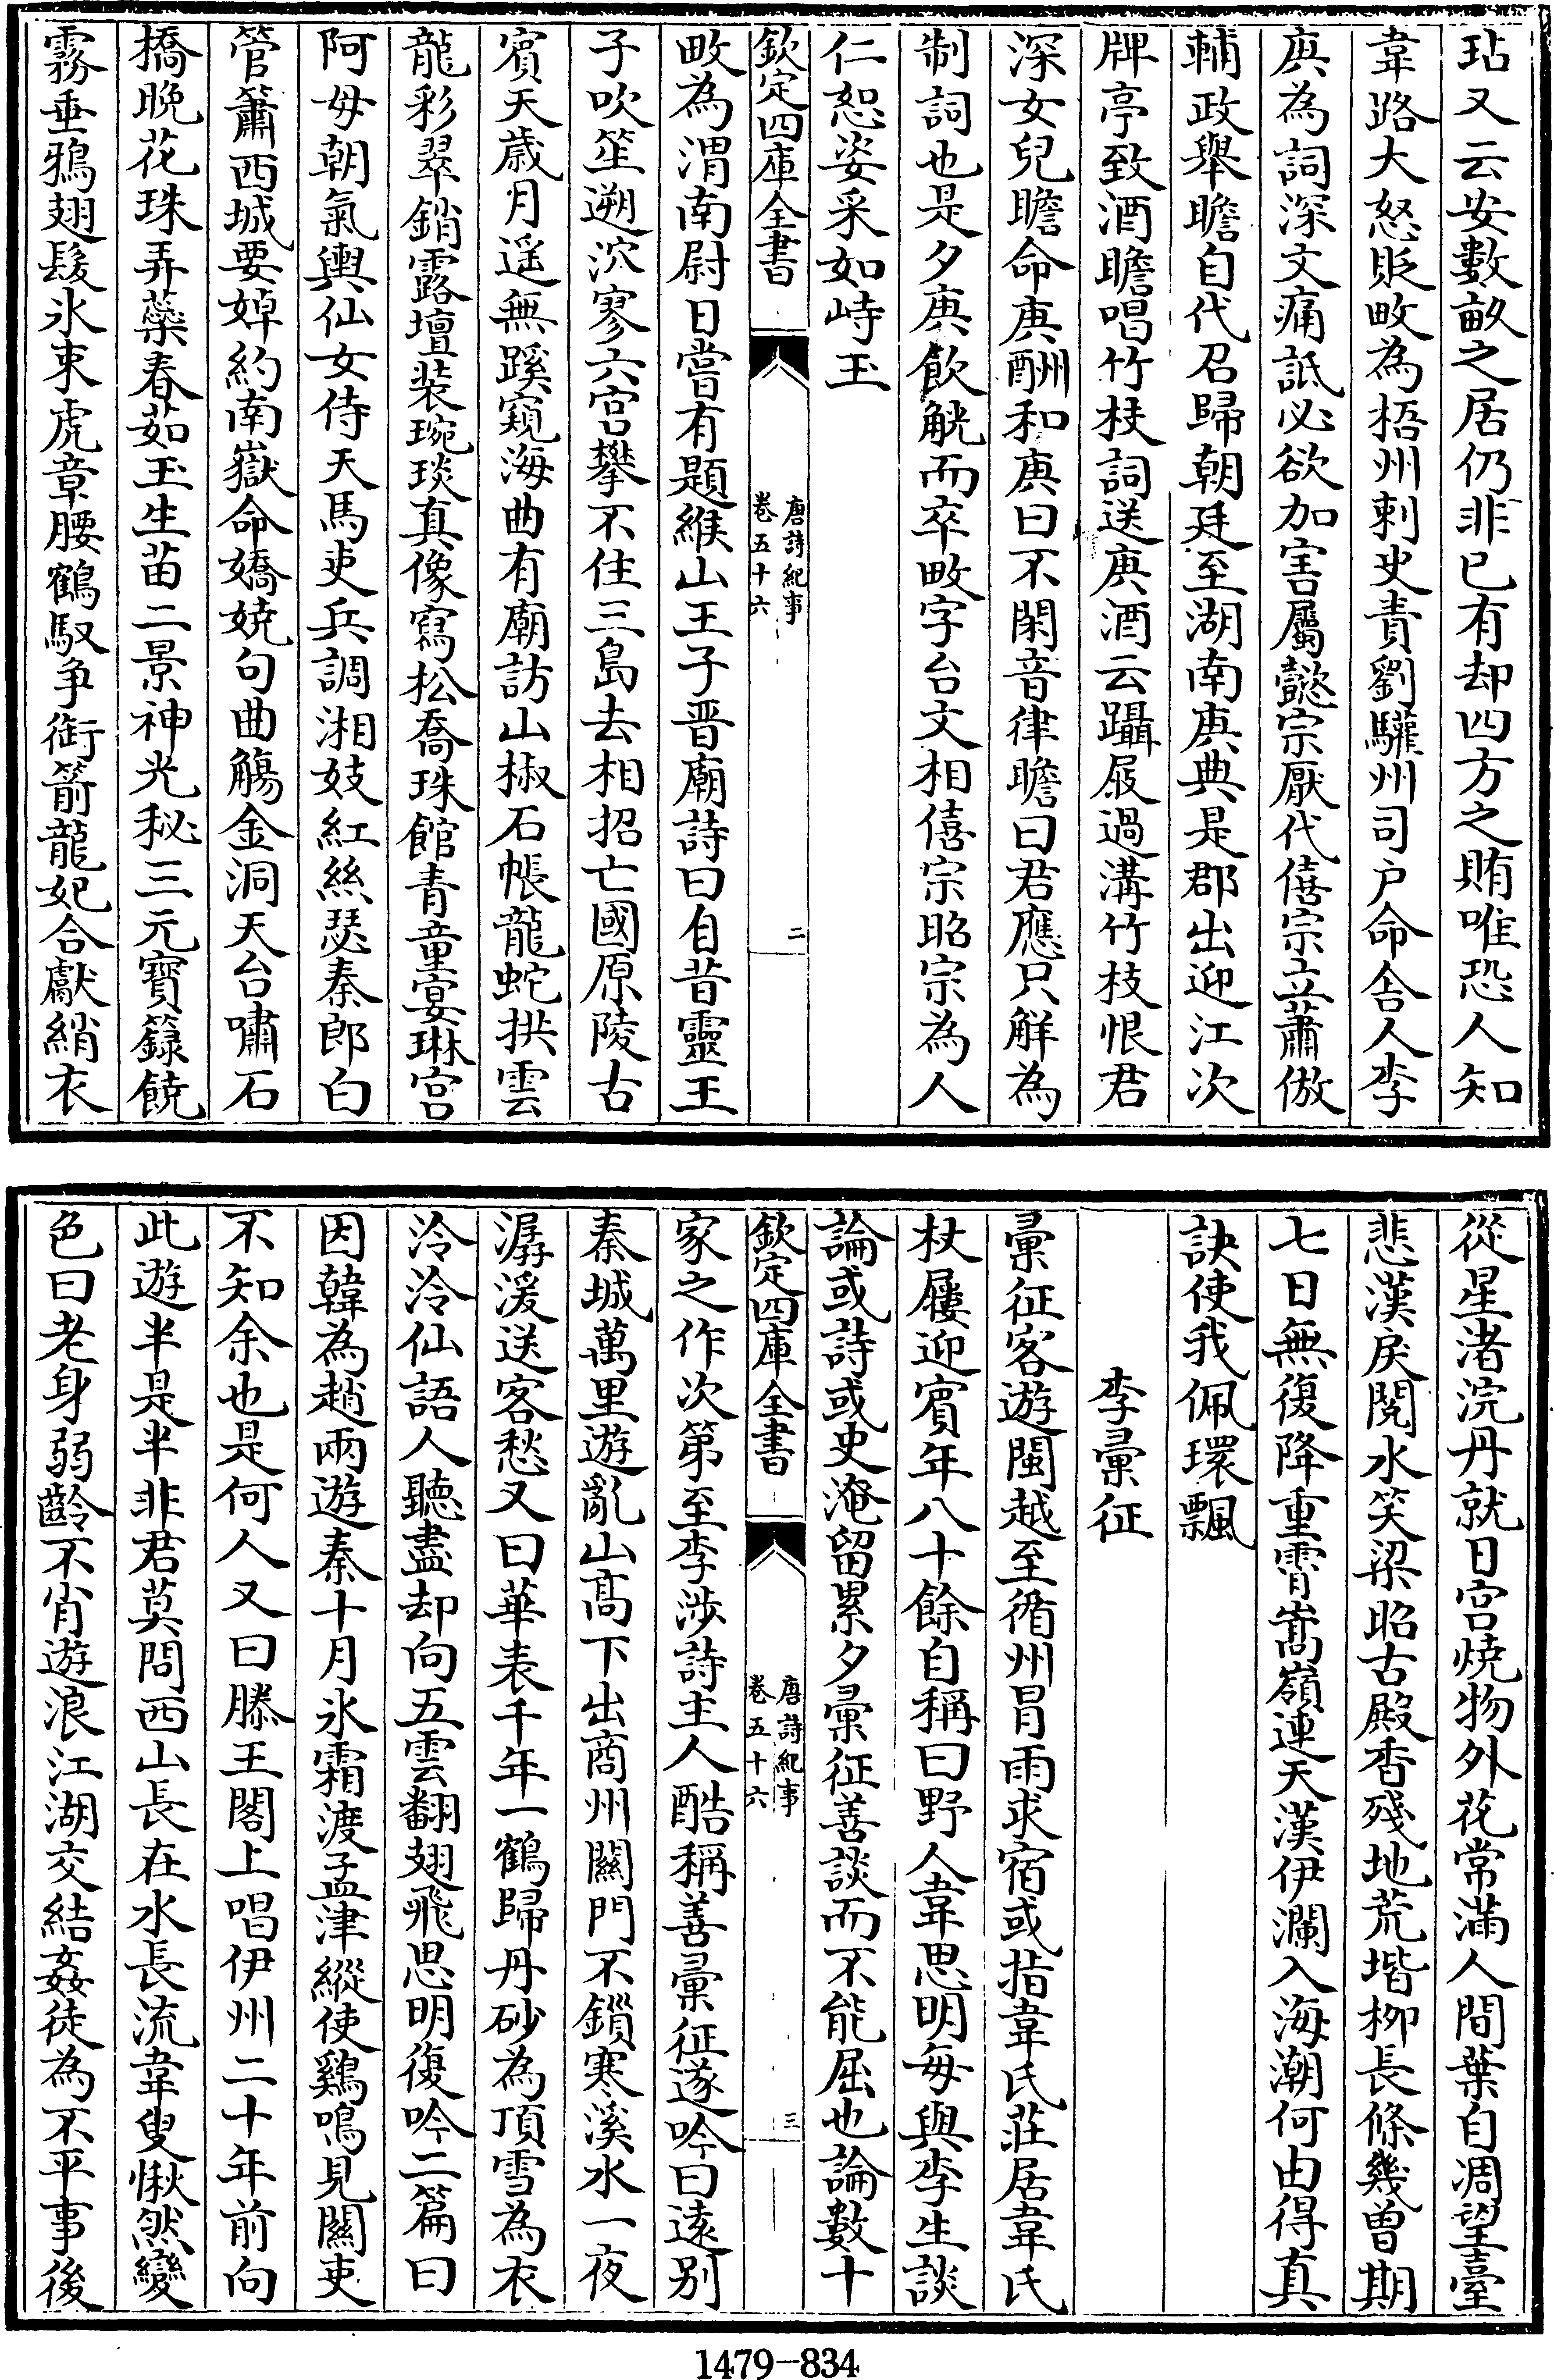 玷又云安數畝之居仍非已有却四方之賄唯恐人知
韋路大怒貶畋為梧州刺史責劉驩州司户命舎人李
庾為詞深文痛詆必欲加害屬懿宗厭代僖宗立蕭倣
輔政舉瞻自代召歸朝廷至湖南庾典是郡出迎江次
牌亭致酒瞻唱竹枝詞送庾酒云躡屐過溝竹枝恨君
深女兒瞻命庾酬和庾曰不閑音律瞻曰君應只解為
制詞也是夕庾飲觥而卒畋字台文相僖宗昭宗為人
仁恕姿采如峙玉
欽定四庫全書
唐詩紀事
卷五十六
二
畋為渭南尉日嘗有題緱山王子晋廟詩曰自昔靈王
子吹笙遡泬寥六宫攀不住三島去相招亡國原陵古
賓天歳月遥無蹊窺海曲有廟訪山椒石帳龍蛇拱雲
龍彩翠銷露壇裝琬琰真像寫松喬珠館青童宴琳宫
阿母朝氣輿仙女侍天馬吏兵調湘妓紅絲瑟秦郎白
管簫西城要婥約南嶽命嬌嬈句曲觴金洞天台嘯石
橋晚花珠弄蘂春茹玉生苗二景神光秘三元寳籙饒
霧垂鴉翅髮氷束虎章腰鶴馭争銜箭龍妃合獻綃衣
從星渚浣丹就日宫燒物外花常滿人間葉自凋望臺
悲漢戾閲水笑梁昭古殿香殘地荒堦栁長條幾曽期
七日無復降重霄嵩嶺連天漢伊瀾入海潮何由得真
訣使我佩環飄
李彚征
彚征客遊閩越至循州冐雨求宿或指韋氏莊居韋氏
杖屨迎賓年八十餘自稱曰野人韋思明毎與李生談
論或詩或史淹留累夕彚征善談而不能屈也論數十
欽定四庫全書
唐詩紀事
卷五十六
三
家之作次第至李渉詩主人酷稱善彚征遂吟曰逺别
秦城萬里遊亂山髙下出商州關門不鎻寒溪水一夜
潺湲送客愁又曰華表千年一鶴歸丹砂為頂雪為衣
泠泠仙語人聽盡却向五雲翻翅飛思明復吟二篇曰
因韓為趙兩遊秦十月氷霜渡孟津縱使鷄鳴見關吏
不知余也是何人又曰滕王閣上唱伊州二十年前向
此遊半是半非君莫問西山長在水長流韋叟愀然變
色曰老身弱齡不肖遊浪江湖交結姦徒為不平事後
1479-834